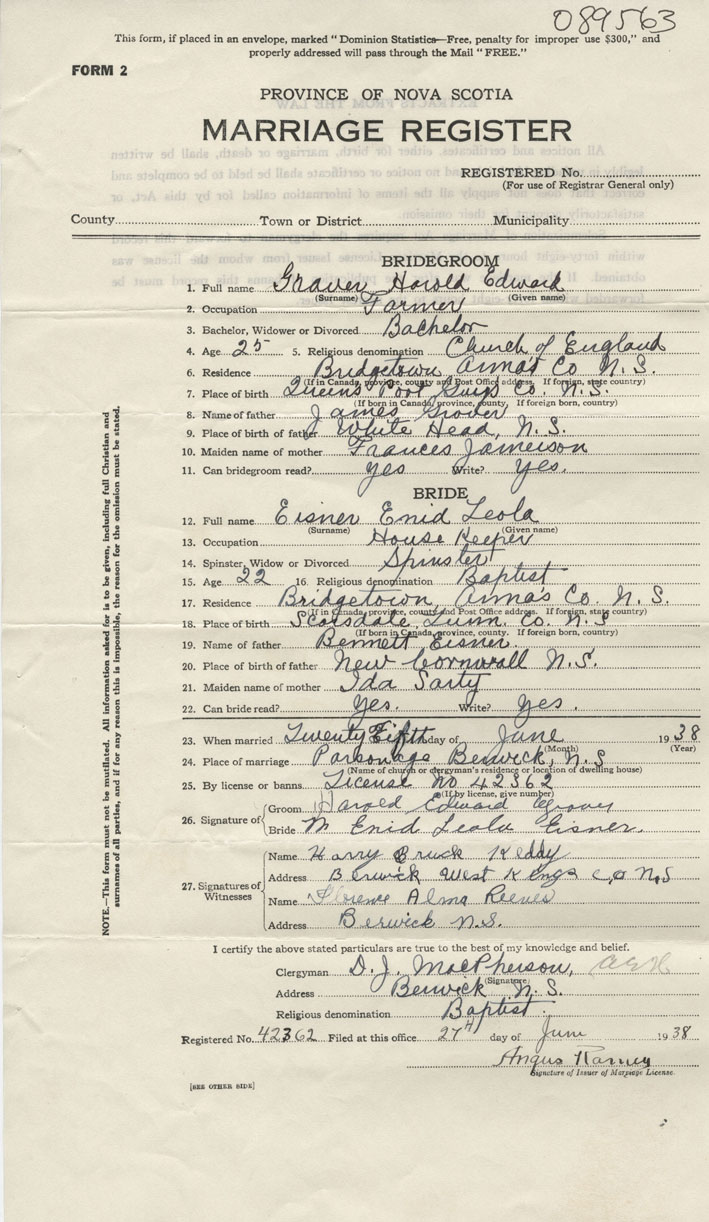 089563
This form, if placed in an envelope, marked "Dominion Statistics—Free, penalty for improper use $300," and
properly addressed will pass through the Mail "FREE."
FORM 2
PROVINCE OF NOVA SCOTIA
MARRIAGE REGISTER
REGISTERED No.
(For use of Registrar General only)
County Town or District Municipality
BRIDEGROOM
1. Full name Graver Harold Edward
(Surname) (Given name)
2. Occupation Farmer
3. Bachelor, Widower or Divorced Bachelor
4. Age 25 5. Religious denomination Church of England
6. Residence Bridgetown Anna's Co N.S.
(If in Canada, province, county and Post Office address. If foreign, state country)
7. Place of birth Queens Port Guys Co. N.S.
(If born in Canada, province, county. If foreign born, country)
8. Name of father James Grover
9. Place of birth of father White Head, N.S.
10. Maiden name of mother Frances Jameison
11. Can bridegroom read? Yes Write? Yes.
BRIDE
12. Full name Eisner Enid Leola
(Surname) (Given name)
13. Occupation House Keeper
14. Spinster, Widow or Divorced Spinster
15. Age 22 16. Religious denomination Baptist
17. Residence Bridgetown Anna's Co. N.S.
(If in Canada, province, county and Post Office address. If foreign, state country)
18. Place of birth Scarsdale Lunn. Co. N.S
(If born in Canada, province, county. If foreign born, country)
19. Name of father Bennett Eisner
20. Place of birth of father New Cornwall N.S.
21. Maiden name of mother Ida Sarty
22. Can bride read? Yes. Write? Yes.
23. When married Twenty Fifth day of June 1938
(Month) (Year)
24. Place of marriage Parsonage Berwick, N.S
(Name of church or clergyman's residence or location of dwelling house)
25. By license or banns License No 42362
(If by license, give number)
26. Signature of Groom Harold Edward Graver
Bride M Enid Leola Eisner.
27. Signatures of Witnesses Name Harry Bruck Keddy
Address Berwick West Kings Co N.S
Name Florence Alma Reeves
Address Berwick N.S.
I certify the above stated particulars are true to the best of my knowledge and belief.
Clergyman D.J. MacPherson,
(Signature)
Address Berwick N.S.
Religious denomination Baptist.
Registered No. 42362 Filed at this office 27th day of June 1938
Angus
Signature of Issuer of Marriage License.
[SEE OTHER SIDE]
NOTE.—This form must not be mutilated. All information asked for is to be given, including full Christian and
surnames of all parties, and if for any reason this is impossible, the reason for the omission must be stated.